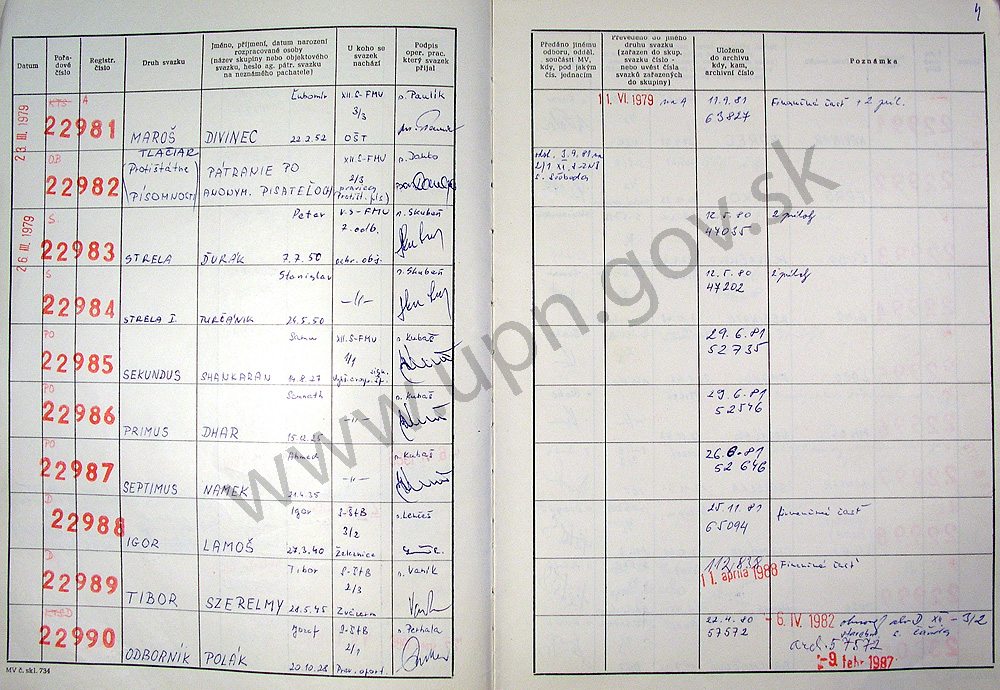 4
Datum
Pořa-
dové
číslo
Registr.
číslo
Druh svazku
Jméno, příjmení, datum narození
rozpracované osoby
(název skupiny nebo objektového
svazku, heslo ag. pátr. svazku
na neznámého pachatele)
U koho se
svazek
nachází
Podpis
oper. prac.
který svazek
přijal
Předáno jinému
odboru, odděl.
součásti MV,
kdy, pod jakým
čís. jednacím
Převedeno do jiného
druhu svazku
(zařazen do skup.
svazku číslo -
nebo uvést čísla
svazků zařazených
do skupiny)
Uloženo
do archivu
kdy, kam,
archivní číslo
Poznámka
23. III. 1979
KTS A
22981
MAROŠ
Ľubomír
DIVINEC 22.2.52
XII.S-FMU
3/3
OŠT
p. Paulík
11. VI. 1979 na A
11.9.81
63827
Finančná časť + 2 pril.
OB
22982
TLAČIAR
(Protištátne
PÍSOMNOSTI)
PÁTRANIE PO
ANONYM. PISATEĽOCH
XII S-FMU
2/3
p. Danko
26. III. 1979
S
22983
STRELA
Peter
ĎURÁK 7.7.50
2. odb.
ochr. obj.
p. Skubeň
12.5.80
47035
2 príloh
S
22984
STRELA I.
Stanislav
TURČÁNIK 24.5.50
-"-
p. Skubeň
12.5.80
47202
2 príloh
PO
22985
SEKUNDUS
SHANKARAN
XII.S-FMU
1/1
p. Kubaš
29.6.81
52735
PO
22986
PRIMUS
DHAR 15.12.25
-"-
p. Kubaš
29.6.81
52546
PO
22987
SEPTIMUS
Ahmed
NAMEK 21.4.35
-"-
p. Kubaš
26.6.81
52646
D
22988
IGOR
Igor
LAMOŠ 27.3.40
S-ŠtB
3/2
Železnice
25.11.81
65094
finančná časť
D
22989
TIBOR
Tibor
SZERELMY 21.5.45
S-ŠtB
2/3
p. Vaník
112 838
11. apríla 1988
Finančná časť
KTSD
22990
ODBORNÍK
Jozef
POLÁK 20.10.28
S-ŠtB
2/1
p. Perhala
22.4.80
57572
- 6. IV. 1982
arch. 57572
-9. febr 1987
MV č. skl. 734
www.upn.gov.sk